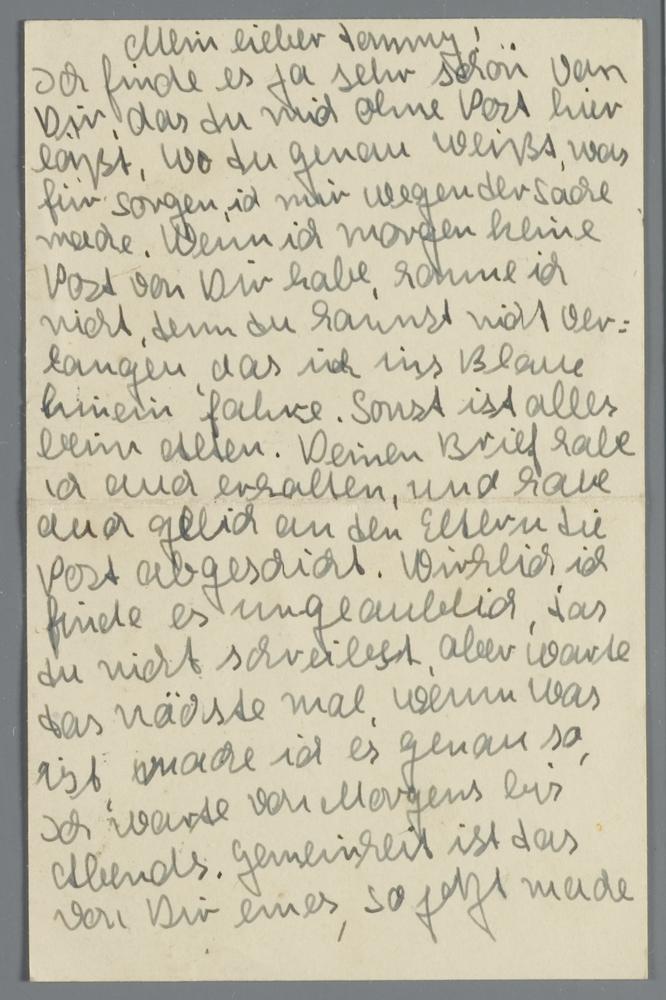 Mein lieber Tommy!
Ich finde es ja sehr schön von
Dir, das du mich ohne Post hier
läßt, wo du genau weißt, was
für sorgen, ich mir wegen der Sache
mache. Wenn ich morgen keine
Post von Dir habe, komme ich
nicht, denn du kannst nicht ver=
langen, das ich ins Blaue
hinein fahre. Sonst ist alles
beim alten. Deinen Brief habe
ich auch erhalten, und habe
auch gleich an den Eltern die
Post abgeschickt. Wirklich ich
finde es ungeaublich, das
du nicht schreibst, aber warte
das nächste mal, wenn was
ist mache ich es genau so,
Ich warte von Morgens bis
Abends. Gemeinheit ist das
von Dir eines, so jetzt mache